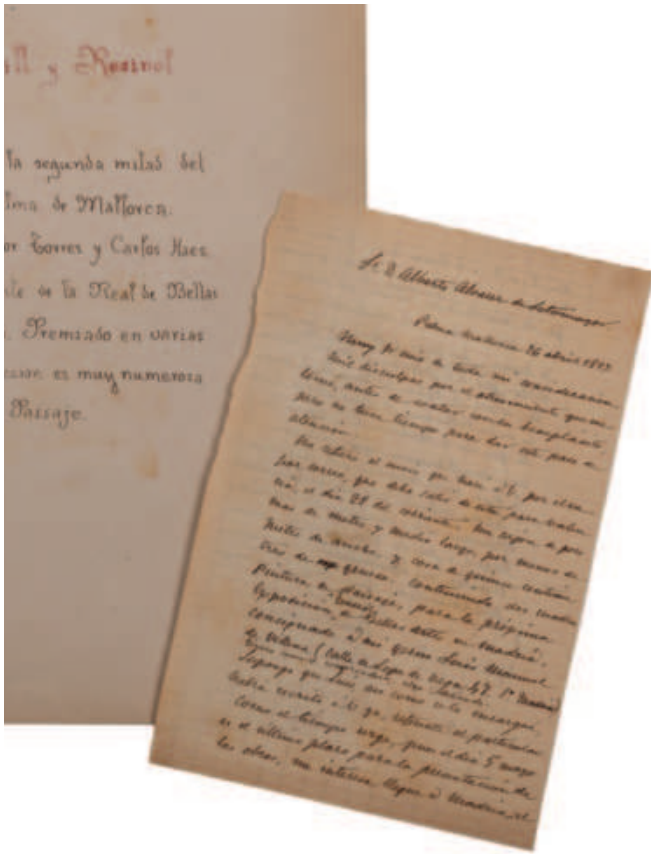 ll y Rosinol
la segunda mitad del
lma de Mallorca.
or Torres y Carlos Haes
te de la Real de Bellas
. Premiado en varias
es muy numerosa
Paisaje.
Sr. D. Alberto Alvarez de Sotomayor
Palma Mallorca 26 abril
Muy Sr. mio de toda mi consideración
mis disculpas por el atrevimiento que me
antes de contar con su beneplácito
pero no tuve tiempo para dar este paso de
atención.
Me refiero al envio que hice á V. por
por correo, que debe salir de este para
cia, el dia 28 del corriente. Una caja de
mas de metro y medio largo, por menos de
metro de ancho, y cosa de quince centime
tros de grueso, conteniendo dos cuadros
pintura de paisaje, para la próxima
Exposición de Bellas Artes en Madrid,
consignado á mi yerno Luis Manuel
de Villena (calle de Lope de Vega 47. 1º Madrid)
Supongo que Luis, asi como se lo encargué,
habrá escrito á V. ya, referente al particular
Como el tiempo urge, pues el dia 5 mayo
es el último plazo para la presentación de
las obras, me interesa llegue á Madrid, el